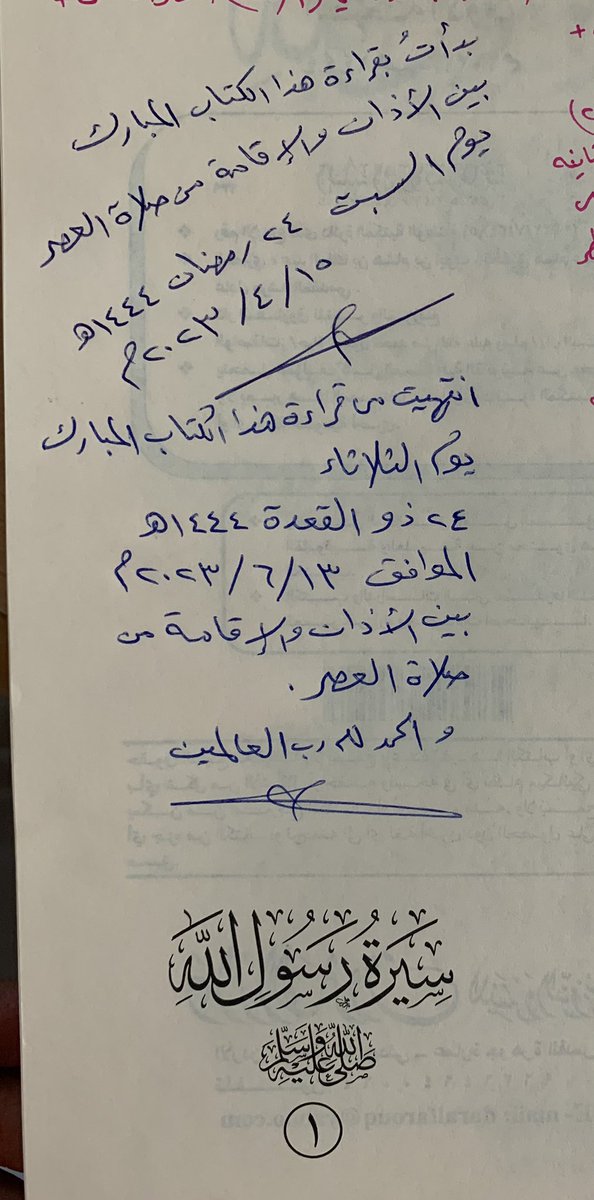 بدأتُ بقراءة هذا الكتاب المبارك
بين الأذان والإقامة من صلاة العصر
يوم السبت ٢٤ رمضان ١٤٤٤هـ
٢٠٢٣/٤/١٥م
انتهيت من قراءة هذا الكتاب المبارك
يوم الثلاثاء
٢٤ ذو القعدة ١٤٤٤هـ
الموافق ٢٠٢٣/٦/١٣م
بين الأذان والإقامة من
صلاة العصر.
والحمد لله رب العالمين
سِيرَةُ رَسُولِ اللَّهِ
صَلَّى اللَّهُ عَلَيْهِ وَسَلَّمَ
١